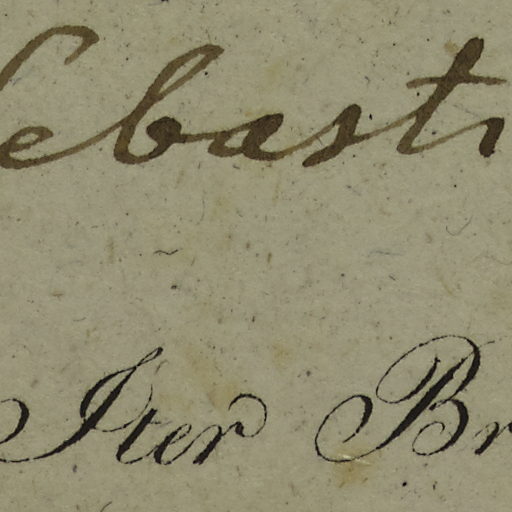 Sebasti
Iter Br